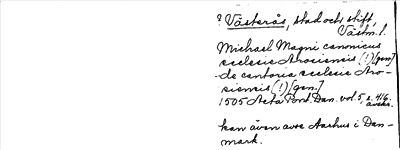 ? Västerås, stad och stift,
Västm. l.
Michael Magni canonicus
ecclesie Arosiensis (!) [gen]
de cantoria ecclesie Aro-
siensis (!) [gen.]
1505 Acta Pont. Dan. vol. 5, s. 416.
avskr.
kan även avse Aarhus i Dan-
mark.